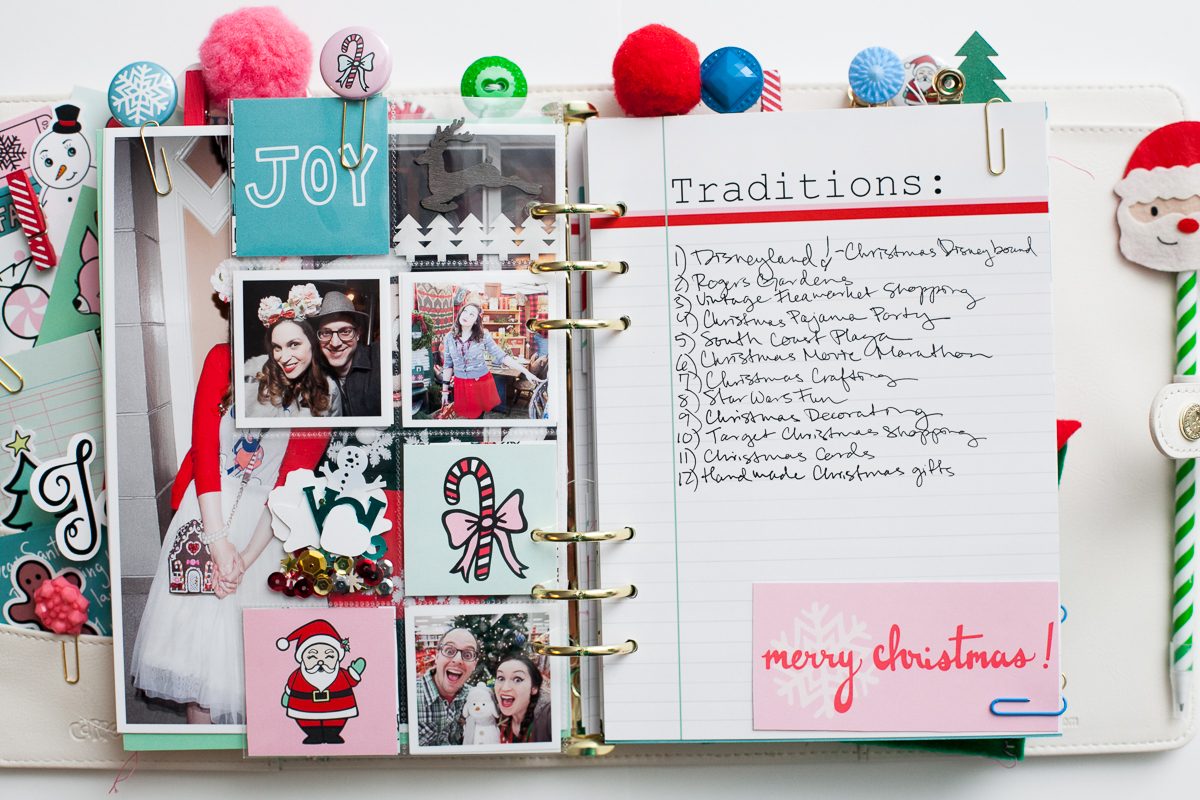 JOY
J
W
Traditions:
1) Disneyland! - Christmas Disneybound
2) Rogers Gardens
3) Vintage Fleamarket Shopping
4) Christmas Pajama Party
5) South Coast Plaza
6) Christmas Movie Marathon
7) Christmas Crafting
8) Star Wars Fun
9) Christmas Decorating
10) Target Christmas Shopping
11) Christmas Cards
12) Handmade Christmas gifts
merry christmas!